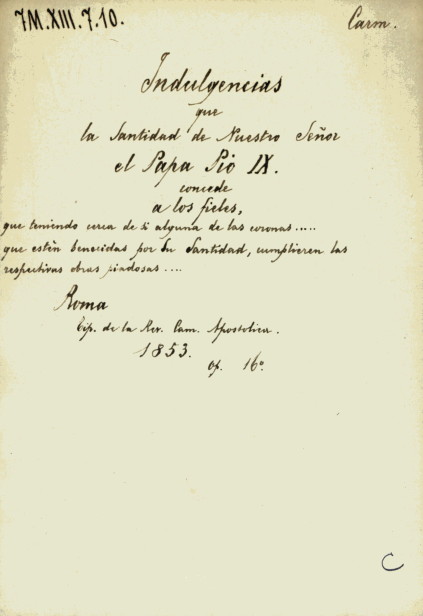 7M.XIII.7.10.
Carm.
Indulgencias
que
la Santidad de Nuestro Señor
el Papa Pio IX.
concede
a los fieles,
que teniendo cerca de si alguna de las coronas.....
que estén benecidas por Su Santidad, cumplieren las
respectivas obras piadosas....
Roma
Tip. de la Rev. Cam. Apostolica.
1853.
16º
C